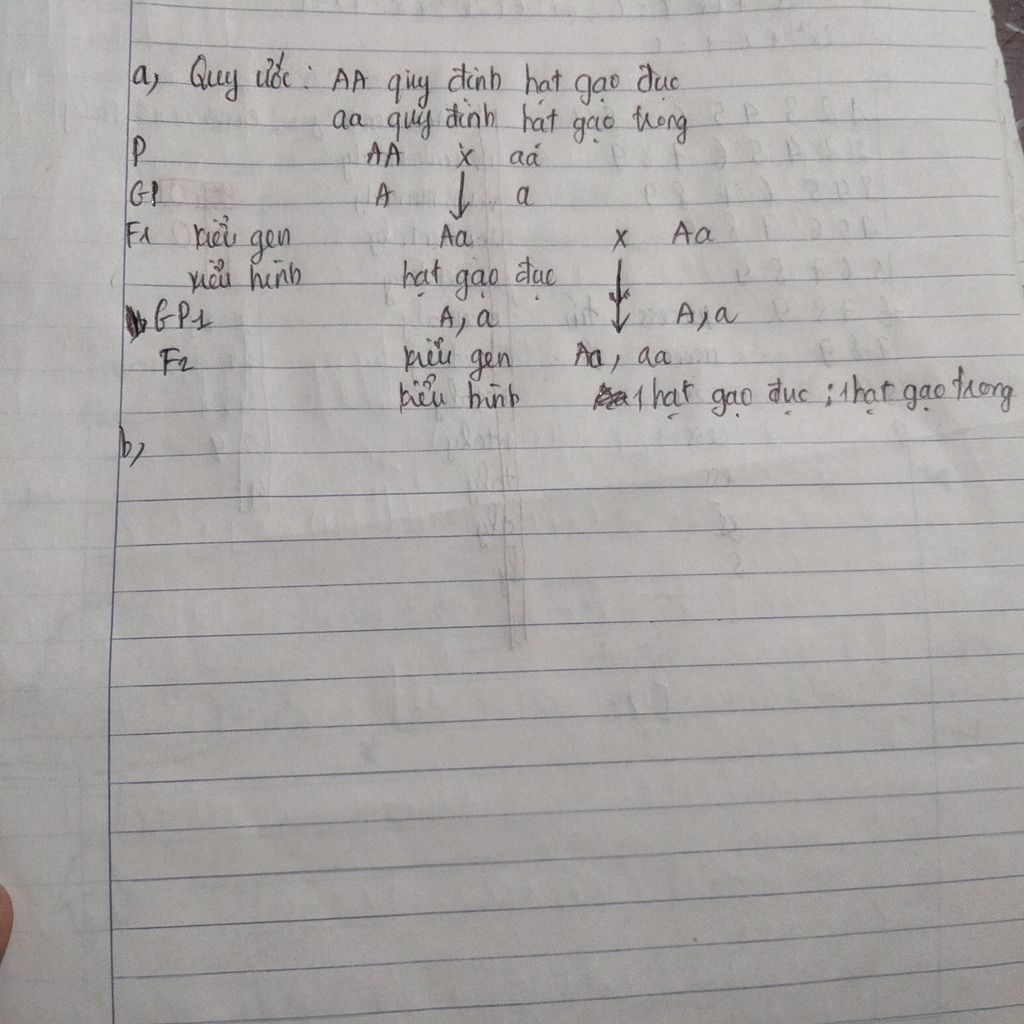 a, Quy ước: AA quy định hạt gạo đục
aa quy định hạt gạo trong
P AA x aa
GP A a
F1 kiểu gen Aa x Aa
kiểu hình hạt gạo đục
GP1 A, a A, a
F2 kiểu gen Aa, aa
kiểu hình 1 hạt gạo đục ; 1 hạt gạo trong
b,